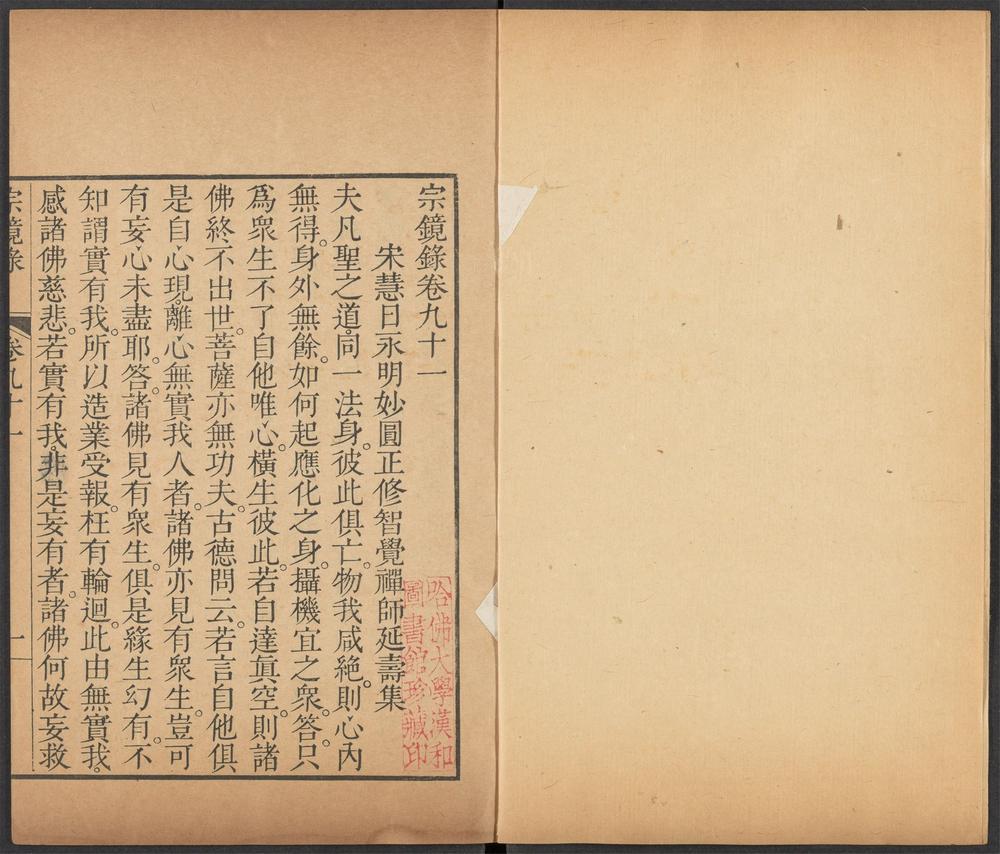 宗鏡錄卷九十一
宋慧日永明妙圓正修智覺禪師延壽集
夫凡聖之道。同一法身。彼此俱亡。物我咸絶。則心內
無得。身外無餘。如何起應化之身。攝機宜之衆。答。只
爲衆生不了自他唯心。橫生彼此。若自達眞空。則諸
佛終不出世。菩薩亦無功夫。古德問云。若言自他俱
是自心現。離心無實我人者。諸佛亦見有衆生。豈可
有妄心未盡耶。答。諸佛見有衆生。俱是緣生幻有。不
知謂實有我。所以造業受報。枉有輪迴。此由無實我。
感諸佛慈悲。若實有我。非是妄有者。諸佛何故妄救
宗鏡錄 卷九十一 一
哈佛大學漢和
圖書館珍藏印